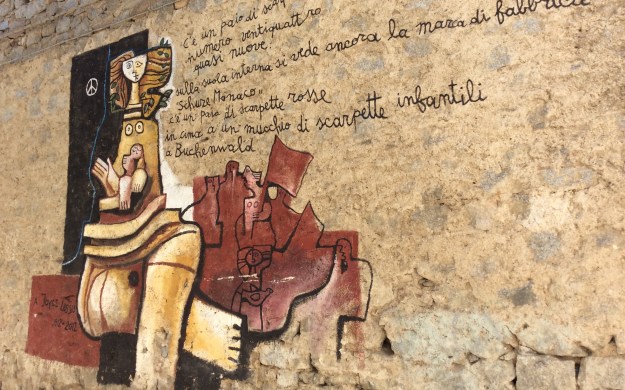 C'è un paio di
numero ventiquattro
quasi nuove:
sulla suola interna si vede ancora la marca di fabbrica
"Schulze Monaco"
c'è un paio di scarpette rosse
in cima a un mucchio di scarpette infantili
a Buchenwald